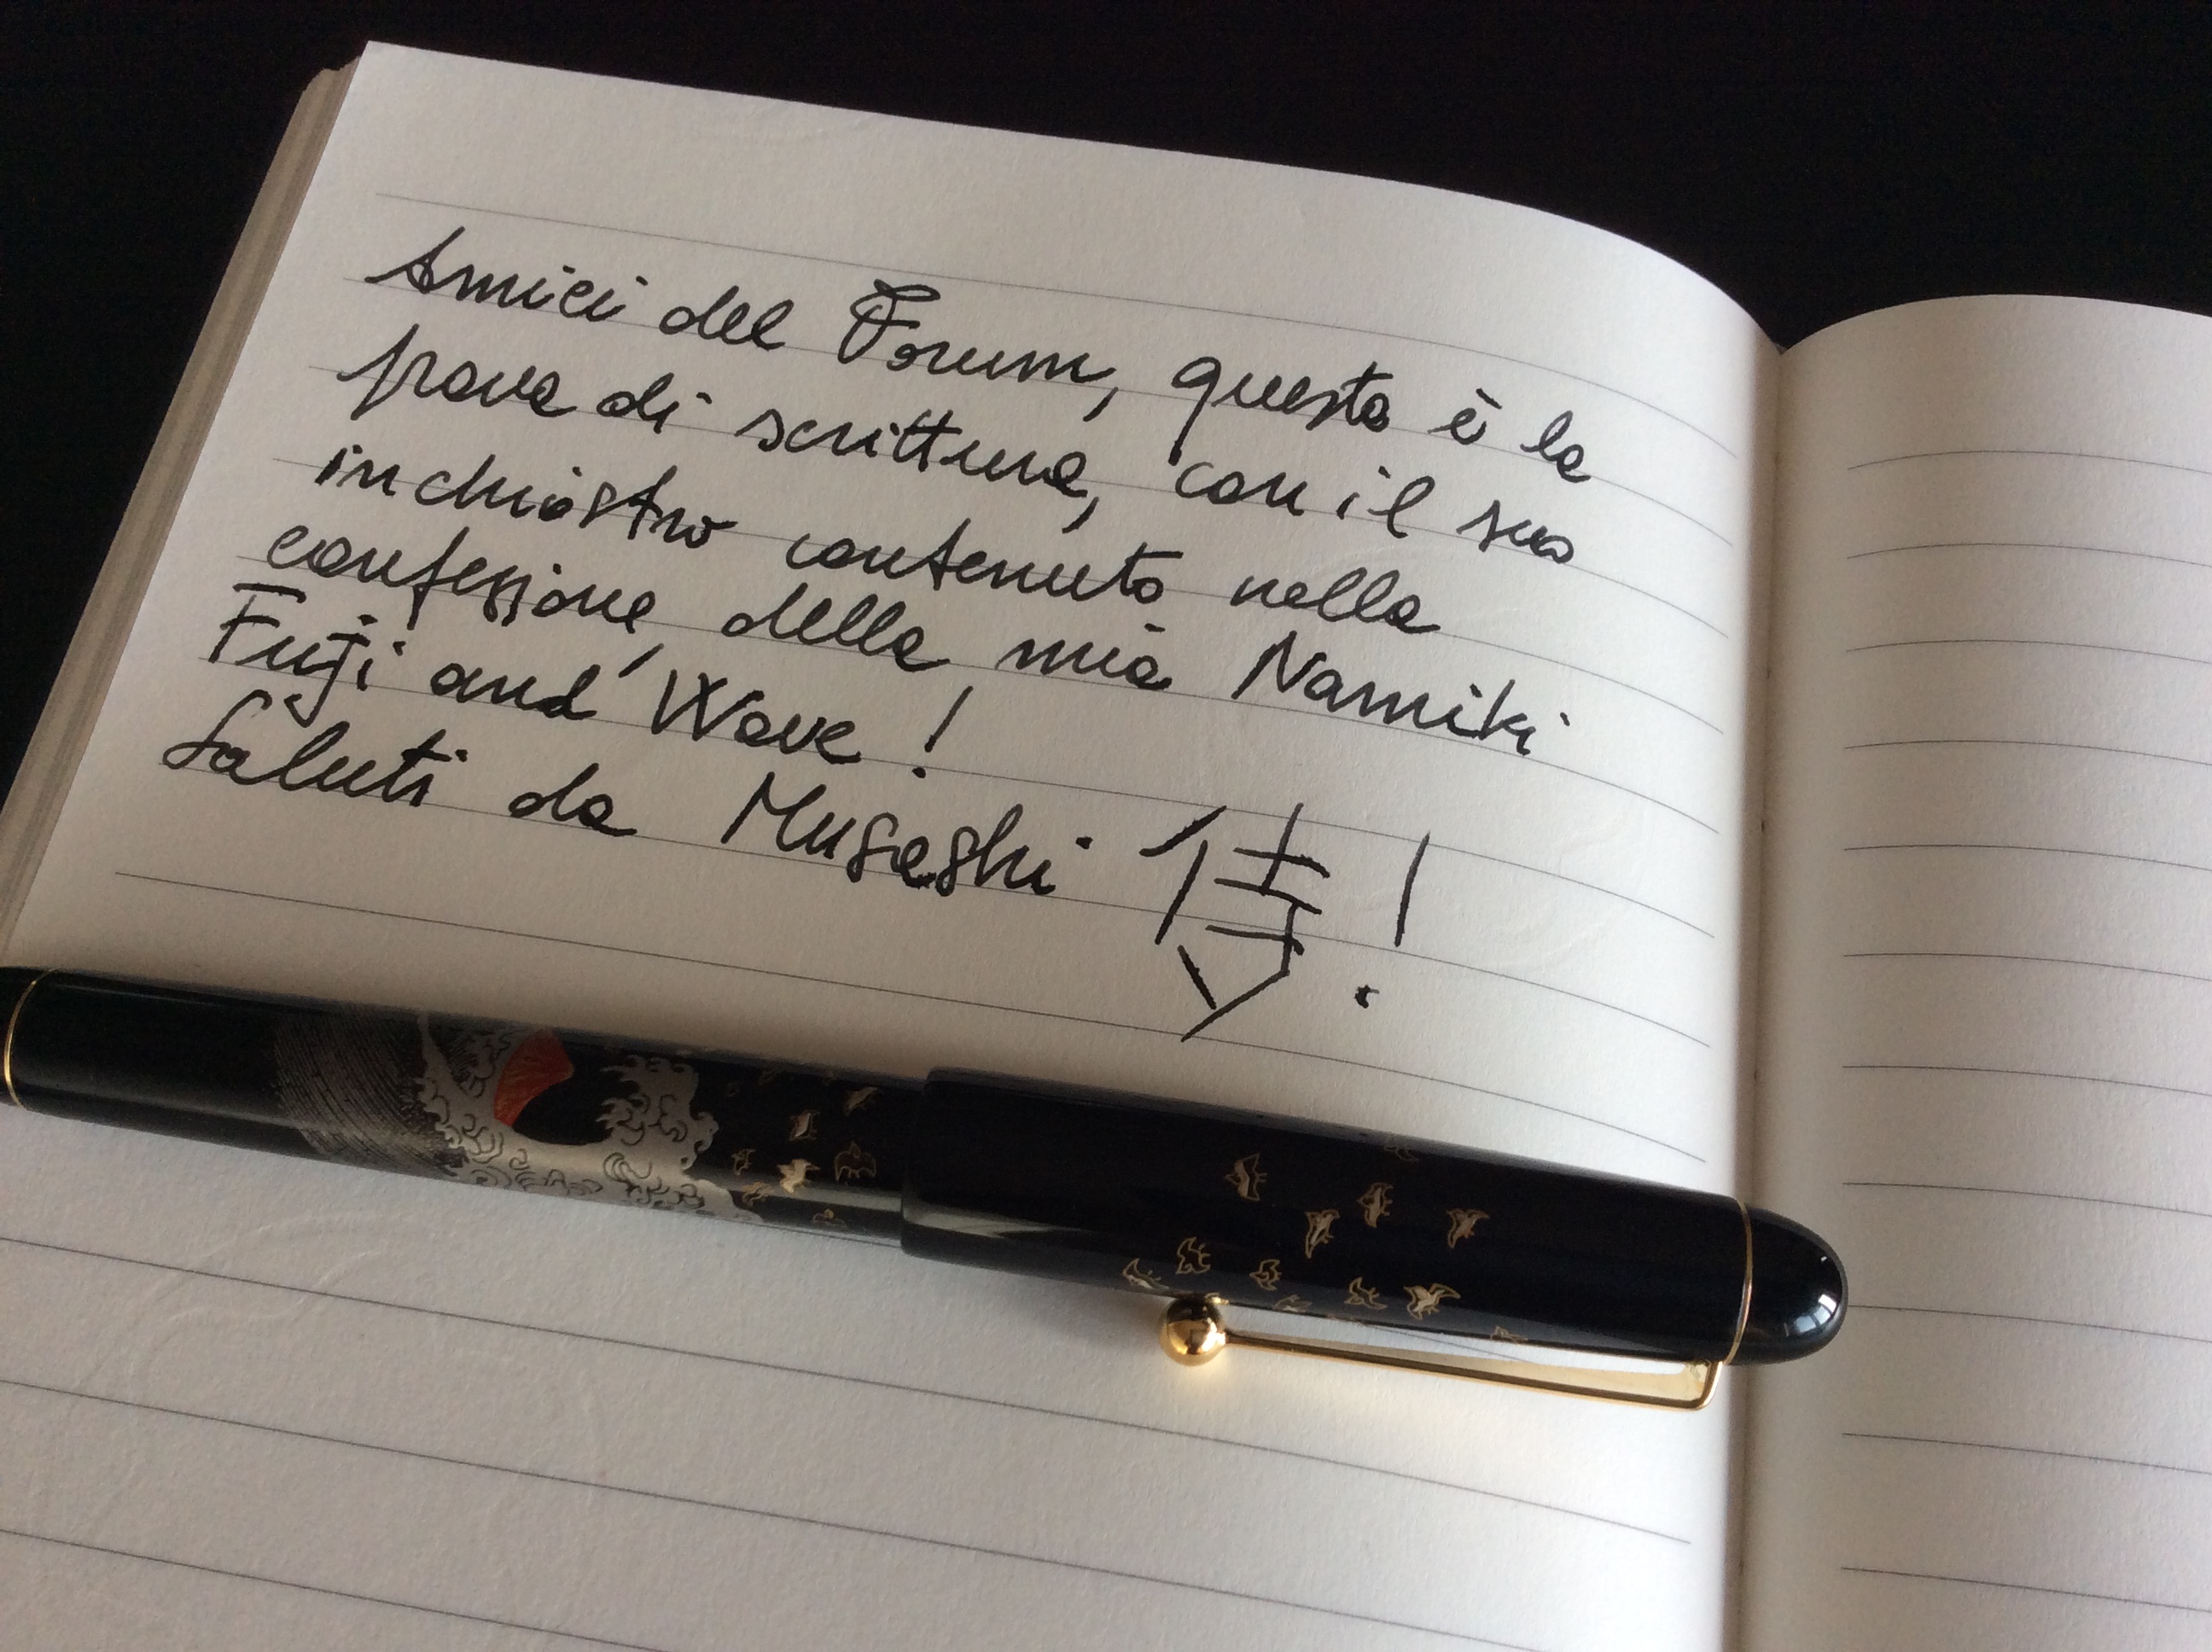 Amici del Forum, questa è la
prova di scrittura, con il suo
inchiostro contenuto nella
confezione, della mia Namiki
Fuji and Wave!
Saluti da Musashi !